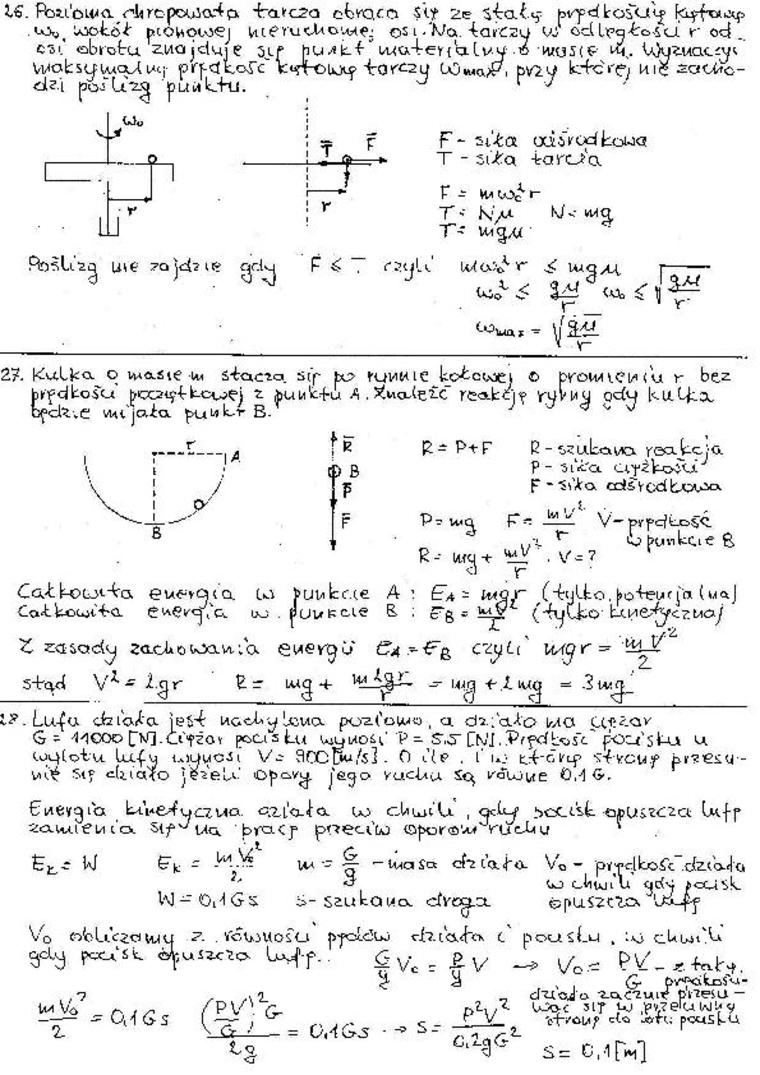 26. Pozioma chropowata tarcza obraca się ze stałą prędkością kątową
ω₀ wokół pionowej nieruchomej osi. Na tarczy w odległości r od
osi obrotu znajduje się punkt materialny o masie m. Wyznaczyć
maksymalną prędkość kątową tarczy ωmax, przy której nie zacho-
dzi poślizg punktu.
ω₀
r
T̄ F̄
r
F - siła odśrodkowa
T - siła tarcia
F = mω₀²r
T = Nμ N = mg
T = mgμ
Poślizg nie zajdzie gdy F ≤ T czyli mω₀²r ≤ mgμ
ω₀² ≤ gμ/r ω₀ ≤ √(gμ/r)
ωmax = √(gμ/r)
27. Kulka o masie m stacza się po rynnie kołowej o promieniu r bez
prędkości początkowej z punktu A. Znaleźć reakcję rynny gdy kulka
będzie mijała punkt B.
r A
B
R̄
B
P̄
F̄
R = P+F R - szukana reakcja
P - siła ciężkości
F - siła odśrodkowa
P = mg F = mV²/r V - prędkość
w punkcie B
R = mg + mV²/r . V = ?
Całkowita energia w punkcie A : E_A = mgr (tylko potencjalna)
Całkowita energia w punkcie B : E_B = mV²/2 (tylko kinetyczna)
Z zasady zachowania energii E_A = E_B czyli mgr = mV²/2
stąd V² = 2gr R = mg + m2gr/r = mg + 2mg = 3mg
28. Lufa działa jest nachylona poziomo, a działo ma ciężar
G = 11000 [N]. Ciężar pocisku wynosi P = 5,5 [N]. Prędkość pocisku u
wylotu lufy wynosi V = 900 [m/s]. O ile i w którą stronę przesu-
nie się działo jeżeli opory jego ruchu są równe 0,1G.
Energia kinetyczna działa w chwili, gdy pocisk opuszcza lufę
zamienia się na pracę przeciw oporom ruchu
E_k = W E_k = mV₀²/2 m = G/g - masa działa V₀ - prędkość działa
w chwili gdy pocisk
W = 0,1Gs s - szukana droga opuszcza lufę
V₀ obliczamy z równości pędów działa i pocisku, w chwili
gdy pocisk opuszcza lufę. G/g V₀ = P/g V → V₀ = PV/G - z taką
prędkością
działo zacznie przesu-
wać się w przeciwną
stronę do lotu pocisku
mV₀²/2 = 0,1Gs (PV/G)²G/2g = 0,1Gs → s = P²V²/0,2gG²
s = 0,1 [m]